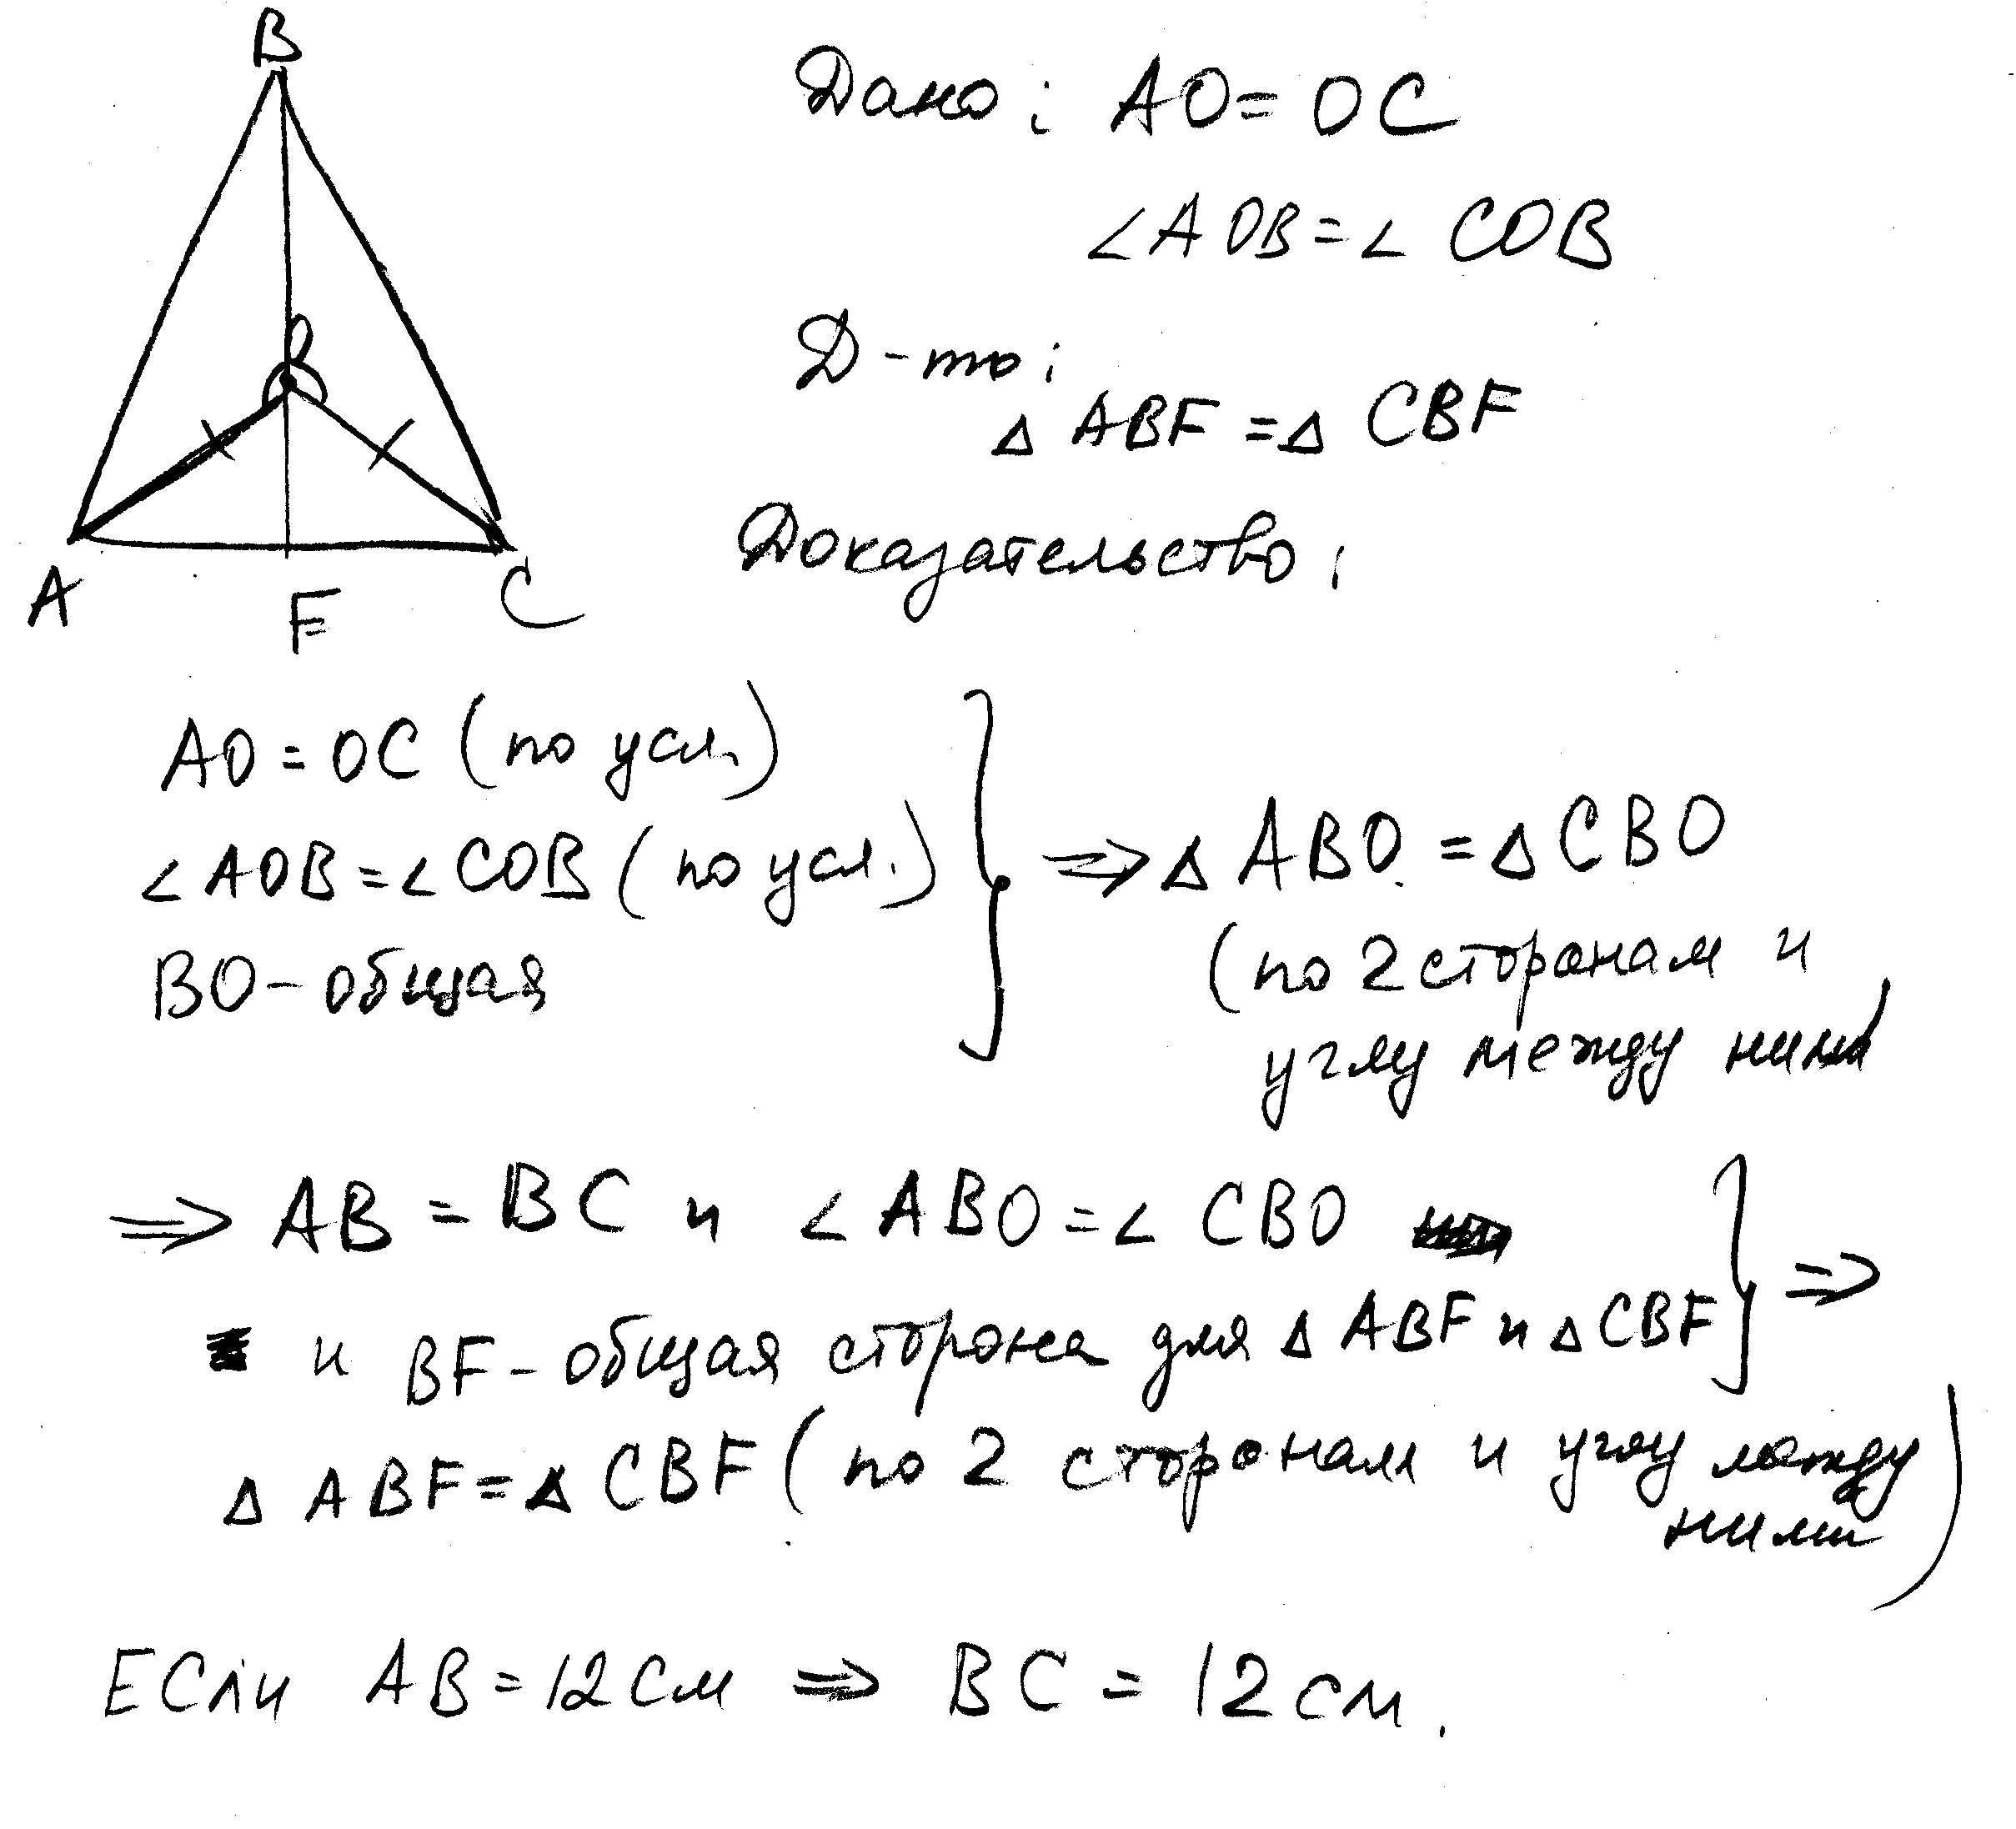 B
O
A
F
C
Дано: AO = OC
∠AOB = ∠COB
Д-ть:
Δ ABF = Δ CBF
Доказательство:
AO = OC (по усл.)
∠AOB = ∠COB (по усл.)
BO - общая
⇒ Δ ABO = Δ CBO
(по 2 сторонам и
углу между ними)
⇒ AB = BC и ∠ABO = ∠CBO
и BF - общая сторона для Δ ABF и Δ CBF ⇒
Δ ABF = Δ CBF (по 2 сторонам и углу между
ними)
Если AB = 12 см ⇒ BC = 12 см.